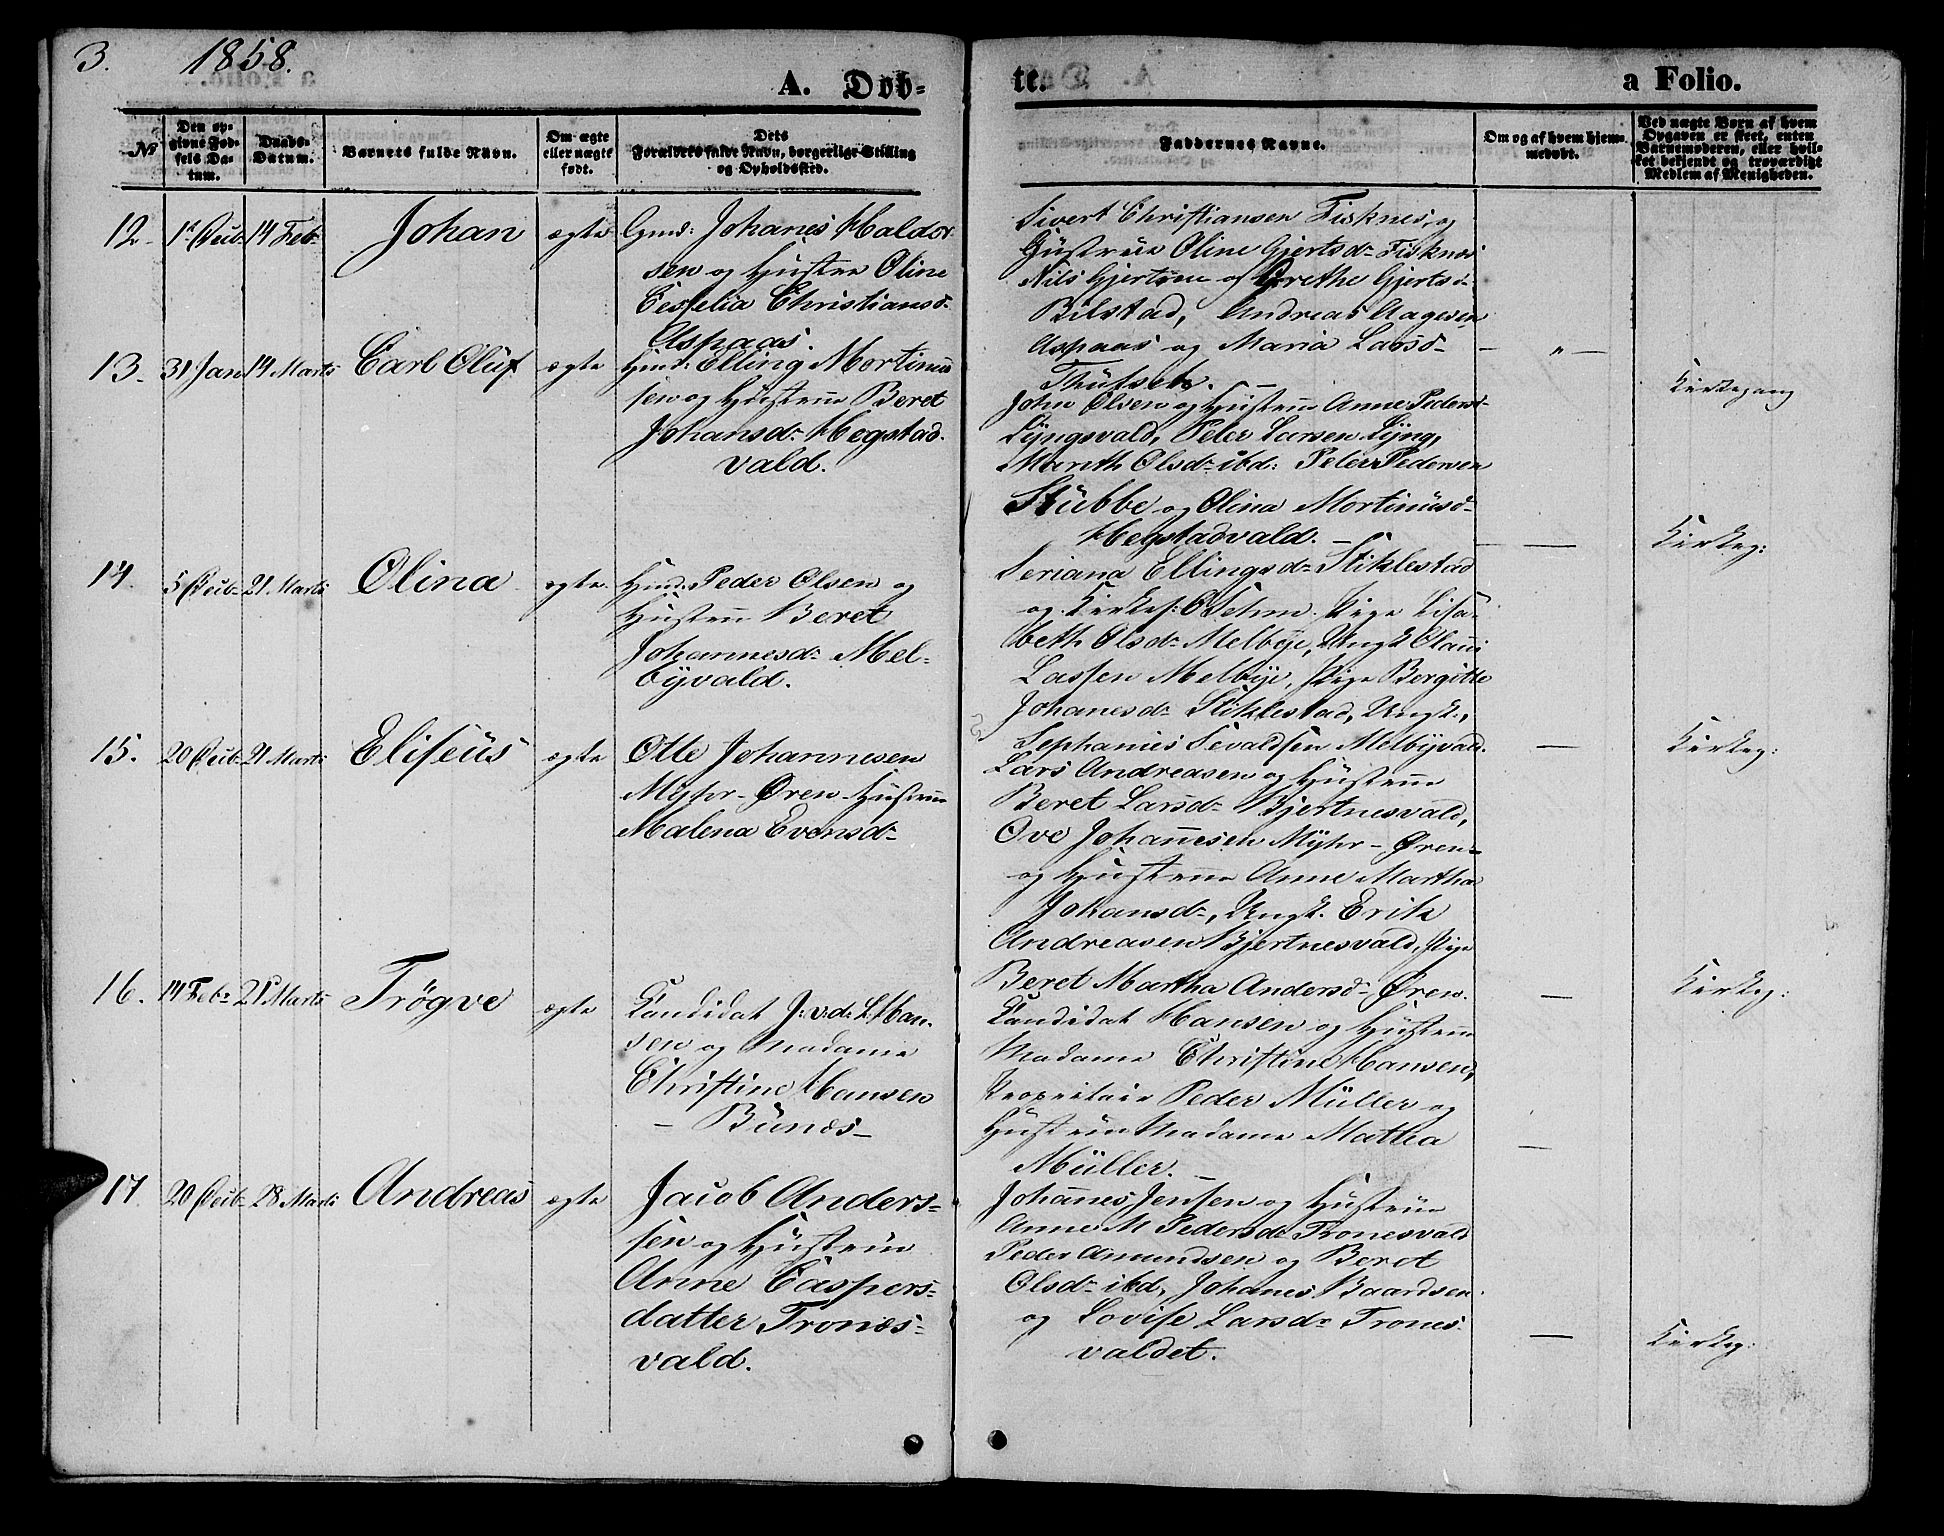 3. 1858.
A. Døb-
te.
a Folio.
No
Den op-
givne Fød-
sels Da-
tum.
Daabs-
Datum.
Barnets fulde Navn.
Om ægte
eller uægte
født.
Dets
Forældres fulde Navn, borgerlige Stilling
og Opholdssted.
Faddernes Navne.
Om og af hvem hjem-
medøbt.
Ved uægte Børn af hvem
Opgaven er skeet, enten
Barnemoderen, eller hvil-
ket bekjendt og troværdigt
Medlem af Menigheden.
12. 14 Feb. Johan ægte Johanes Haldor-
sen og Hustru Oline
Cesselia Christiansd.
Aspaas.
Sivert Christiansen Fisknes, og
Hustrue Oline Gjertsd. Fisknes
Nils Gjertsen og Grethe Gjertsd.
Bilstad, Andreas Aagesen
Aspaas og Maria Larsd.
13. 31 Jan 14 Marts Carl Oluf ægte Hmd: Elling Mortinu
sen og Hustru Beret
Johansd. Hegstad-
vald.
John Olsen og Hustru Anne Pedersd.
Lyngsvald, Peter Larsen Lyng,
Marith Olsd. ibd: Peter Pedersen
Stubbe og Olina Mortinusd.
Hegstadvald.
Kirkegang
14. 21 Marts Olina ægte Hmd: Peder Olsen og
Hustru Beret
Johannesd. Mel-
byvald.
Seriana Ellingsd. Stiklestad
og Kirkes: Pige Lisa-
beth Olsd. Melbye, Ungk. Olaus
Lassen Melbye, Pige Bergitte
Johanesd. Stiklestad, Ungk.
Sephanias Sevaldsen Melbyvald.
Kirkeg:
15. 21 Marts Eliseus ægte Otte Johannesen
Myhr-Øren Hustru
Malena Evensd.
Lars Andreasen og Hustru
Beret Larsd. Bjertnesvald,
Ove Johannesen Myhr-Øren
og Hustru Anne Martha
Johansd., Ungk. Erik
Andreasen Bjertnesvald, Pige
Beret Martha Andersd. Øren.
Kirkeg:
16. 14 Feb. 21 Marts Trögve ægte Candidat J. v. d. L. Han-
sen og Madame
Christine Hansen
- Bunæs -
Candidat Hansen og Hustru
Madame Christine Hansen,
Proprietair Peder Müller og
Hustru Madame Mathea
Müller.
Kirkeg:
17. 28 Marts Andreas ægte Jacob Anders-
sen og Hustru
Anne Caspers-
datter Tronæs-
vald.
Johannes Jensen og Hustru
Anne M Pedersd. Tronesvald
Peder Amundsen og Beret
Olsd. ibd, Johanes Baardsen
og Lovise Larsd. Trones-
valdet.
Kirkeg: